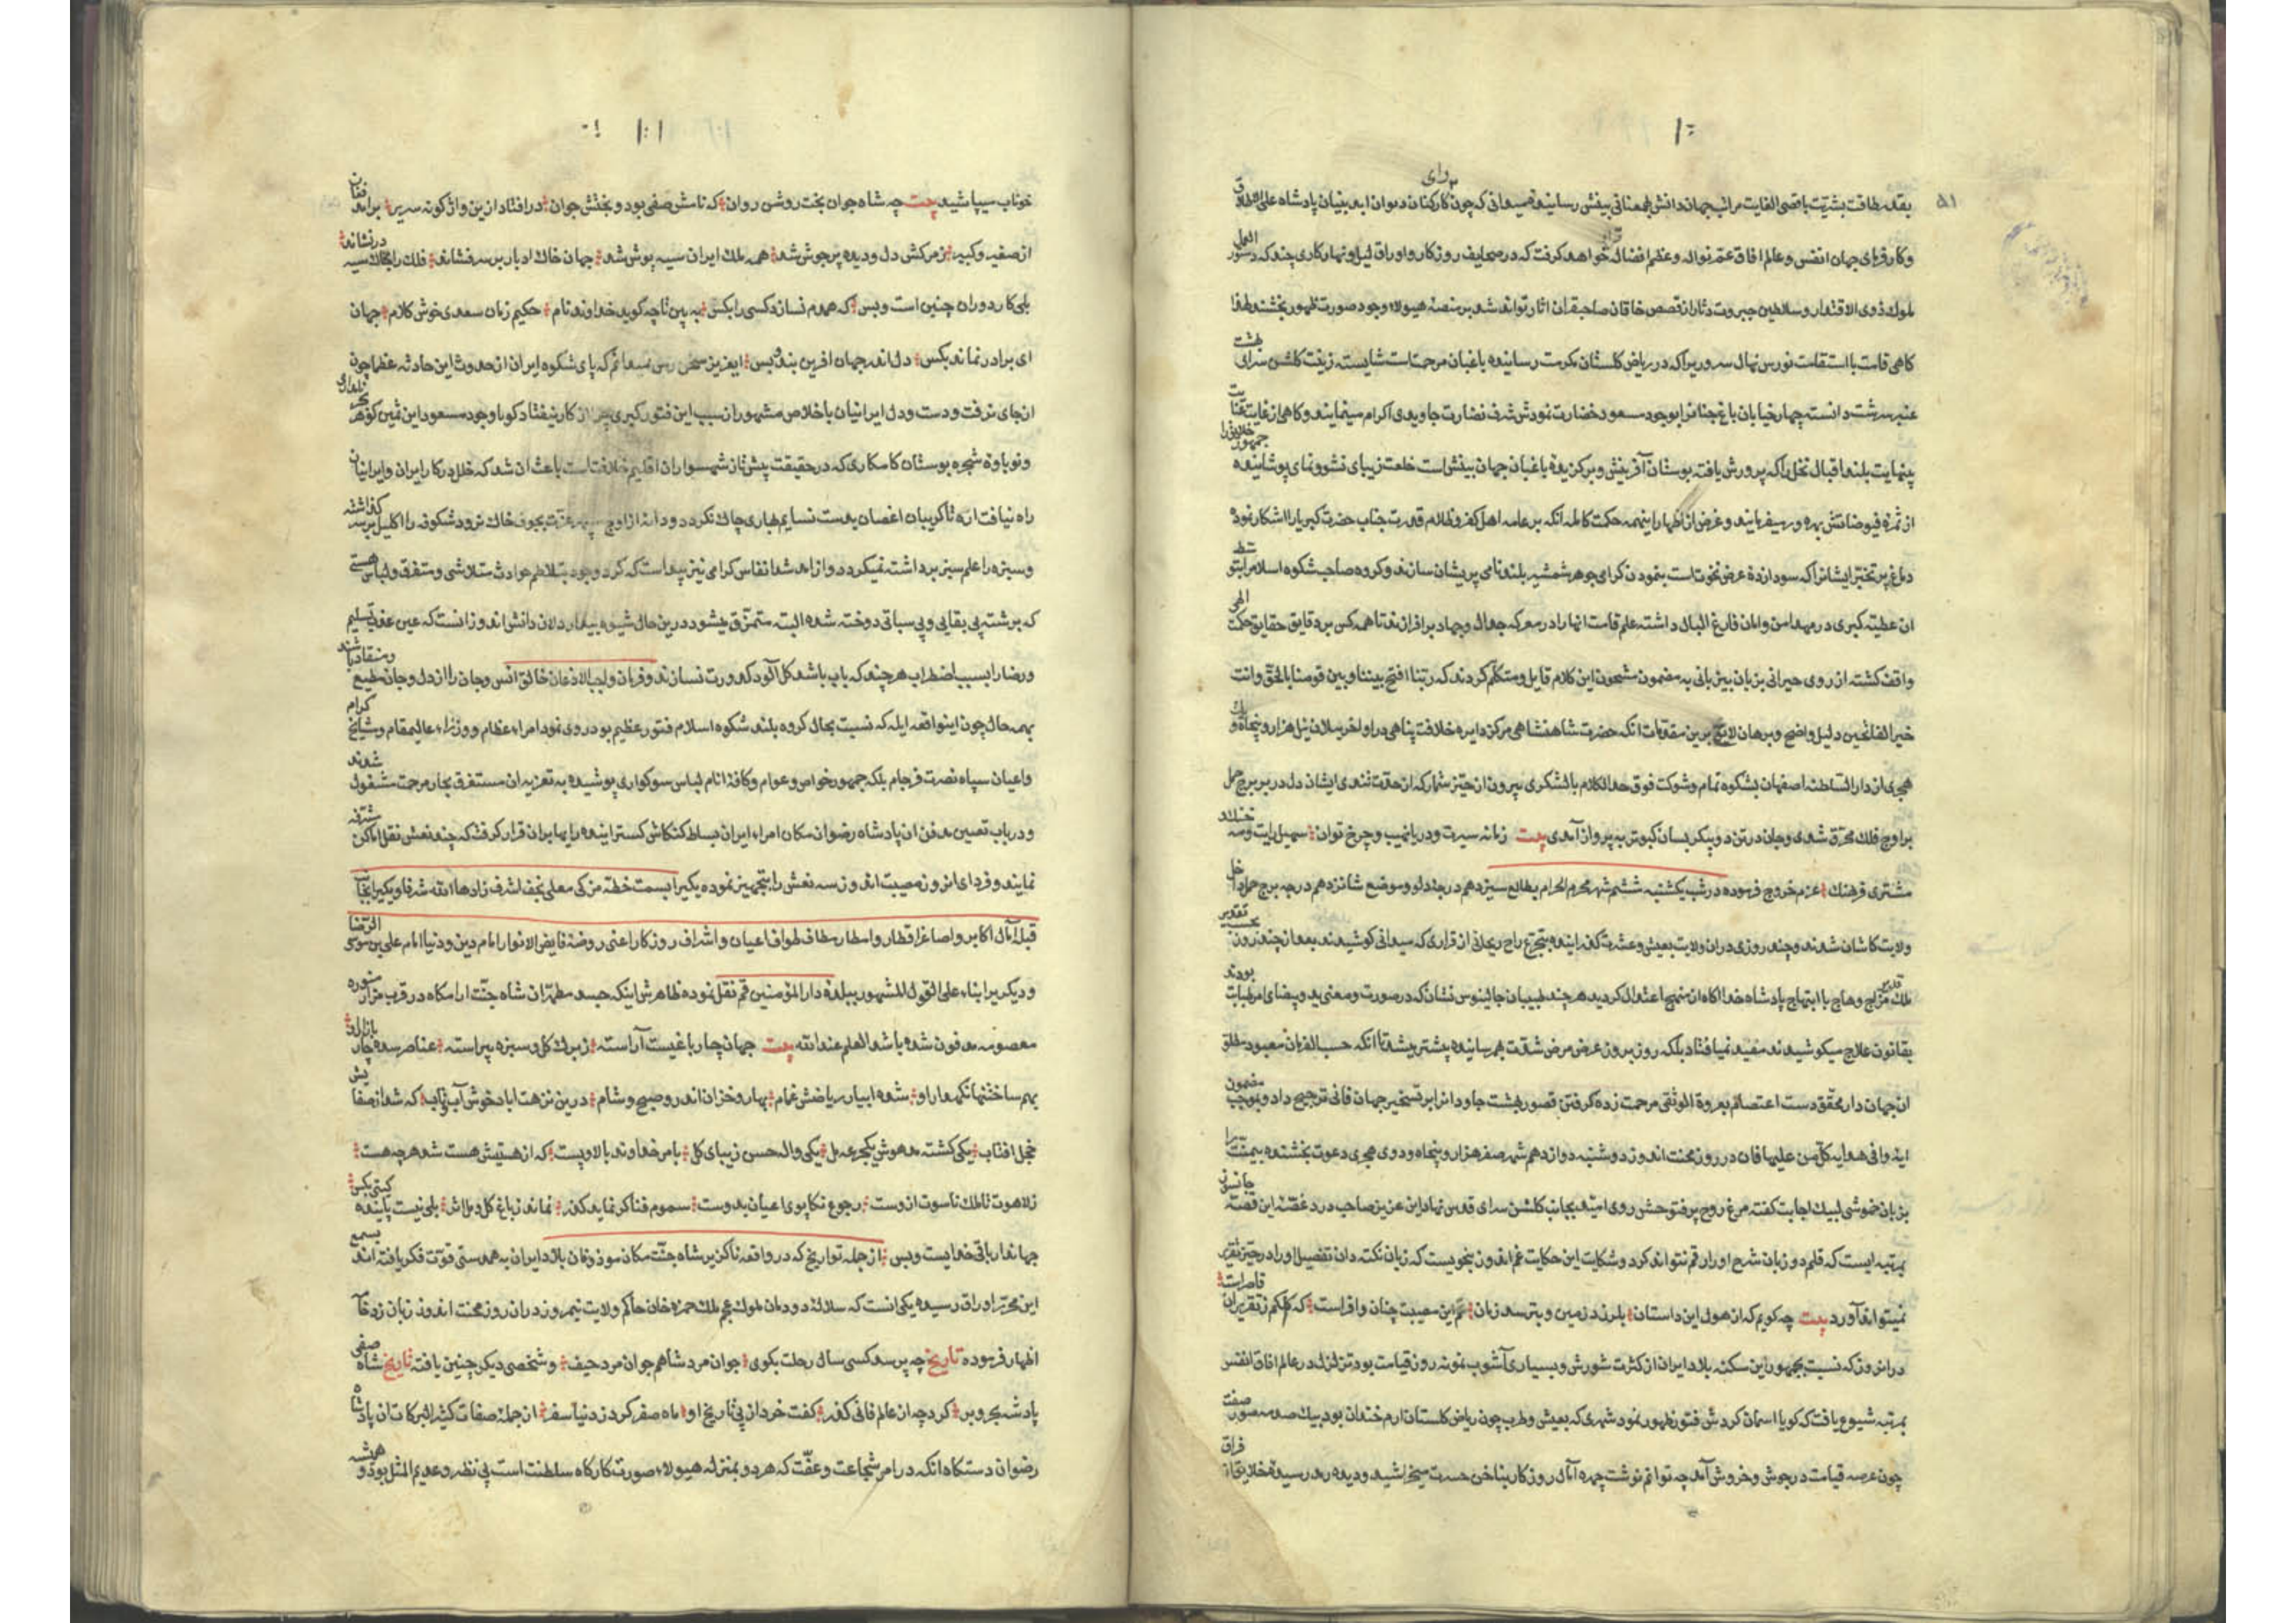 بقدر طاقت بشریت باقصی الغایت مراتب جهان دانش
و کارفرمای جهان انفس و عالم آفاق عم نواله و عظم افضاله خواهد گرفت که در صحایف روزگار و اوراق لیل و نهار کاری چند که دستور العمل
ملوک ذوی الاقتدار و سلاطین جبروت دثار از قصص خاقان صاحبقران آثار تواند شد بر منصه هیولاء وجود صورت ظهور بخشند لهذا
گاهی قامت با استقامت نورس نهال سروریرا که در ریاض گلستان مکرمت رسانیده باغبان مرحمتست شایسته زینت گلشن سرای بهشت
عنبر سرشت دانسته چهار خیابان باغ جنانرا بوجود مسعود خضارت نمودش شرف نضارت جاویدی اکرام مینمایند و گاهی از غایت عنایت
بینهایت بلند اقبال نخلی را که پرورش یافته بوستان آفرینش و برگزیده باغبان جهان بینش است خلعت زیبای نشو و نمای پوشانیده جمهور خلایق را
از ثمره فیوضاتش بهره ور میفرمایند و غرض از اظهار اینهمه حکمت کامله آنکه بر عامه اهل کفر و ظلام قدرت جناب حضرت کبریا را آشکار نموده
دماغ پر تبختر ایشانرا که سودا زده عرض نخوت است بنمودن گرای جوهر شمشیر بلند نامی پریشان سازند و گروه صاحب شکوه اسلام را بتوسط
آن عطیه کبری در مهد امن و امان فارغ البال داشته علم قامت آنها را در معرکه جدال و جهاد برافرازند تا همه کس بر دقایق حقایق حکمت الهی
واقف گشته از روی حیرانی بزبان بیزبانی به مضمون مشحون این کلام قایل و متکلم گردند که ربنا افتح بیننا و بین قومنا بالحق و انت
خیر الفاتحین دلیل واضح و برهان لایح برین مقولات آنکه حضرت شاهنشاهی مرکز دایره خلافت پناهی در اواخر سلان ئیل هزار و پنجاه و یک
هجری از دار السلطنه اصفهان بشکوه تمام و شوکت فوق حد الکلام با لشکری بیرون از حیز شمار که از حدت تندی ایشان دل در بر برج حمل
بر اوج فلک محترق شدی و جان در تن دو پیکر بسان کبوتر به پرواز آمدی بیت زمانه سیرت و دریا نهیب و چرخ توان سهیل رایت و مه خنک
مشتری فرهنگ عزم خروج فرموده در شب یکشنبه ششم شهر محرم الحرام بطالع سیزدهم درجه دلو و موضع شانزدهم درجه برج حمل داخل
ولایت کاشان شدند و چند روزی دران ولایت بعیش و عشرت گذرانیده بتجرع راح ریحانی از قراری که میدانی کوشیدند بعد از چند روز
ملک مزاج وهاج با ابتهاج پادشاه خدا آگاه از منهج اعتدال گردید هر چند طبیبان جالینوس نشان که در صورت و معنی ید بیضای
بقانون علاج میکوشیدند مفید نمیافتاد بلکه روز بروز عرض مرض شدت بهمرسانیده بیشتر میشد تا آنکه حسب الفرمان معبود مطلق
آن جهاندار محقق دست اعتصام بعروة الوثقی مرحمت زده گرفتن قصور بهشت جاودانرا بر تسخیر جهان فانی ترجیح داد و بموجب مضمون
آیه وافی هدایه کل من علیها فان در روز محنت اندوز دوشنبه دوازدهم شهر صفر هزار و پنجاه و دوی هجری دعوت بخشنده بیمنت را
بزبان خموشی لبیک اجابت گفته مرغ روح پرفتوحش روی امید بجانب گلشن سرای قدس نهاد این عزیز صاحب درد غصه این قصه جانسوز
بمرتبه ایست که قلم دو زبان شرح او را رقم نتواند کرد و شکایت این حکایت غم اندوز بنحویست که زبان نکته دان تفصیل او را در حیز تقریر
نمیتواند آورد بیت چه گویم که از هول این داستان بلرزد زمین و بترسد زمان غم این مصیبت چنان وافر است که کلکم ز تقریر آن قاصر است
در آنروز که نسبت بجمهور این سکنه بلاد ایران از کثرت شورش و بسیاری آشوب نمونه روز قیامت بود تزلزل در عالم آفاق انفس
بمرتبه شیوع یافت که گویا آسمان گردش فتور ظهور نمود شهری که بعیش و طرب چون ریاض گلستان ارم خندان بود بیک صدمه صور صفت
چون عرصه قیامت در جوش و خروش آمد چه توانم نوشت چهره آمال روزگار بناخن حسرت میخراشید و دیده رمد رسیده خلایق از فراق
خوناب میپاشید بیت چه شاه جوان بخت روشن روان که نامش صفی بود و بختش جوان در افتاد ازین واژگونه سریر برآمد فغان
از صغیر و کبیر ز مرگش دل و دیده پر جوش شد همه ملک ایران سیه پوش شد جهان خاک ادبار بر سر فشاند فلک را بخاک سیه در نشاند
بلی کار دوران چنین است و بس که همدم نسازد کسی را بکس ببین تا چه گوید خداوند نام حکیم زمان سعدی خوش کلام جهان
ای برادر نماند بکس دل اندر جهان آفرین بند و بس ایعزیز سخن رس نمیدانم که پای شکوه ایران از حدوث این حادثه عظما چون
از جای نرفت و دست و دل ایرانیان با خلاص مشهور از سبب این فتور کبری چرا از کار نیفتاد گویا وجود مسعود این ثمین گوهر
و نوباوه شجره بوستان کامکاری که در حقیقت پیش تاز شهسواران اقلیم خلافتست باعث آن شد که خلل در کار ایران و ایرانیان
راه نیافت آره تا گریبان اغصان بدست نسایم بهاری چاک نگردد و دانه از اوج سپهر عزت بجوف خاک نرود شکوفه را اکلیل بر سر گذاشته
و سبزه را علم سبز برداشته نمیگردد و از آمد شد انفاس گرامی نیز پیداست که گرد وجود بتلاطم حوادث متلاشی و متفرق و لباس هستی
که برشته بی بقایی و بی ثباتی دوخته شده البته متمزق میشود درین حال شیوه بیدار دلان دانش اندوز آنست که عین عذب تسلیم
و رضا را بسبب اضطراب هر چند که باب باشد گل آلود کدورت نسازند و فرمان واجب الاذعان خالق انس و جان را از دل و جان مطیع و منقاد باشند
بهمه حال چون اینواقعه هایله که نسبت بحال گروه بلند شکوه اسلام فتور عظیم بود روی نمود امراء عظام و وزراء عالیمقام و مشایخ کرام
و اعیان سپاه نصرت فرجام بلکه جمهور خواص و عوام و کافه انام لباس سوکواری پوشیده به تعزیه آن مستغرق بحار مرحمت مشغول شدند
و در باب تعیین مدفن آن پادشاه رضوان مکان امراء ایران بساط کنکاش گسترانیده رایها بران قرار گرفت که چند نعش نقل اماکن مشرفه
نمایند و فردای آنروز مصیبت اندوز سه نعش را تجهیز نموده یکیرا بسمت خطه مزکی معلی نجف اشرف زادها الله شرفا و یکیرا بجانب
قبله آمال اکابر و اصاغر اقطار و امطار مطاف طواف اعیان و اشراف روزگار اعنی روضه فایض الانوار امام دین و دنیا امام علی بن موسی الرضا
و دیگریرا بناء علی القول المشهور ببلده دار المؤمنین قم نقل نموده ظاهرش اینکه جسد مطهر آن شاه جنت آرامگاه در قرب مزار منوره
معصومه مدفون شده باشد العلم عند الله بیت جهان چار باغیست آراسته ز برگ گل و سبزه پیراسته عناصر
بهم ساخته شده آبیار ریاضش غمام بهار و خزان اندرو صبح و شام درین نزهت آباد خوش آب و تاب که شد از صفایش
خجل آفتاب یکی گشته مدهوش یکجرعه مل یکی واله حسن زیبای گل بامر خداوند بالا و پست که از هستیش هست شد هر چه هست
ز لاهوت تا ملک ناسوت ازوست رجوع تکاپوی اعیان بدوست سموم فنا گر نماید گذر نماند ز باغ گل و بلبل اثر بلی نیست پاینده گیتی بکس
جهاندار باقی خدایست و بس از جمله تواریخ که در واقعه ناگزیر شاه جنت مکان موزونان بلاد ایران به همدستی قوت فکر یافته اند بسمع
این محرر اوراق رسیده یکی آنست که سلاله دودمان ملوک عجم ملک حمزه خان حاکم ولایت نیمروز در آن روز محنت اندوز زبان زد خامه
اظهار فرموده تاریخ چه پرسد کسی سال رحلت بگوی جوان مرد شاهم جوان مرد حیف و شخصی دیگر چنین یافته تاریخ شاه صفی
پادشه بحر و بر کرد چه از عالم فانی گذر گفت خرد از پی تاریخ او ماه صفر کرد ز دنیا سفر از جمله صفات کثیر البرکات آن پادشاه
رضوان دستگاه آنکه در امر شجاعت و عفت که هر دو بمنزله هیولاء صورت کارگاه سلطنت است بی نظیر و عدیم المثل بود و همیشه